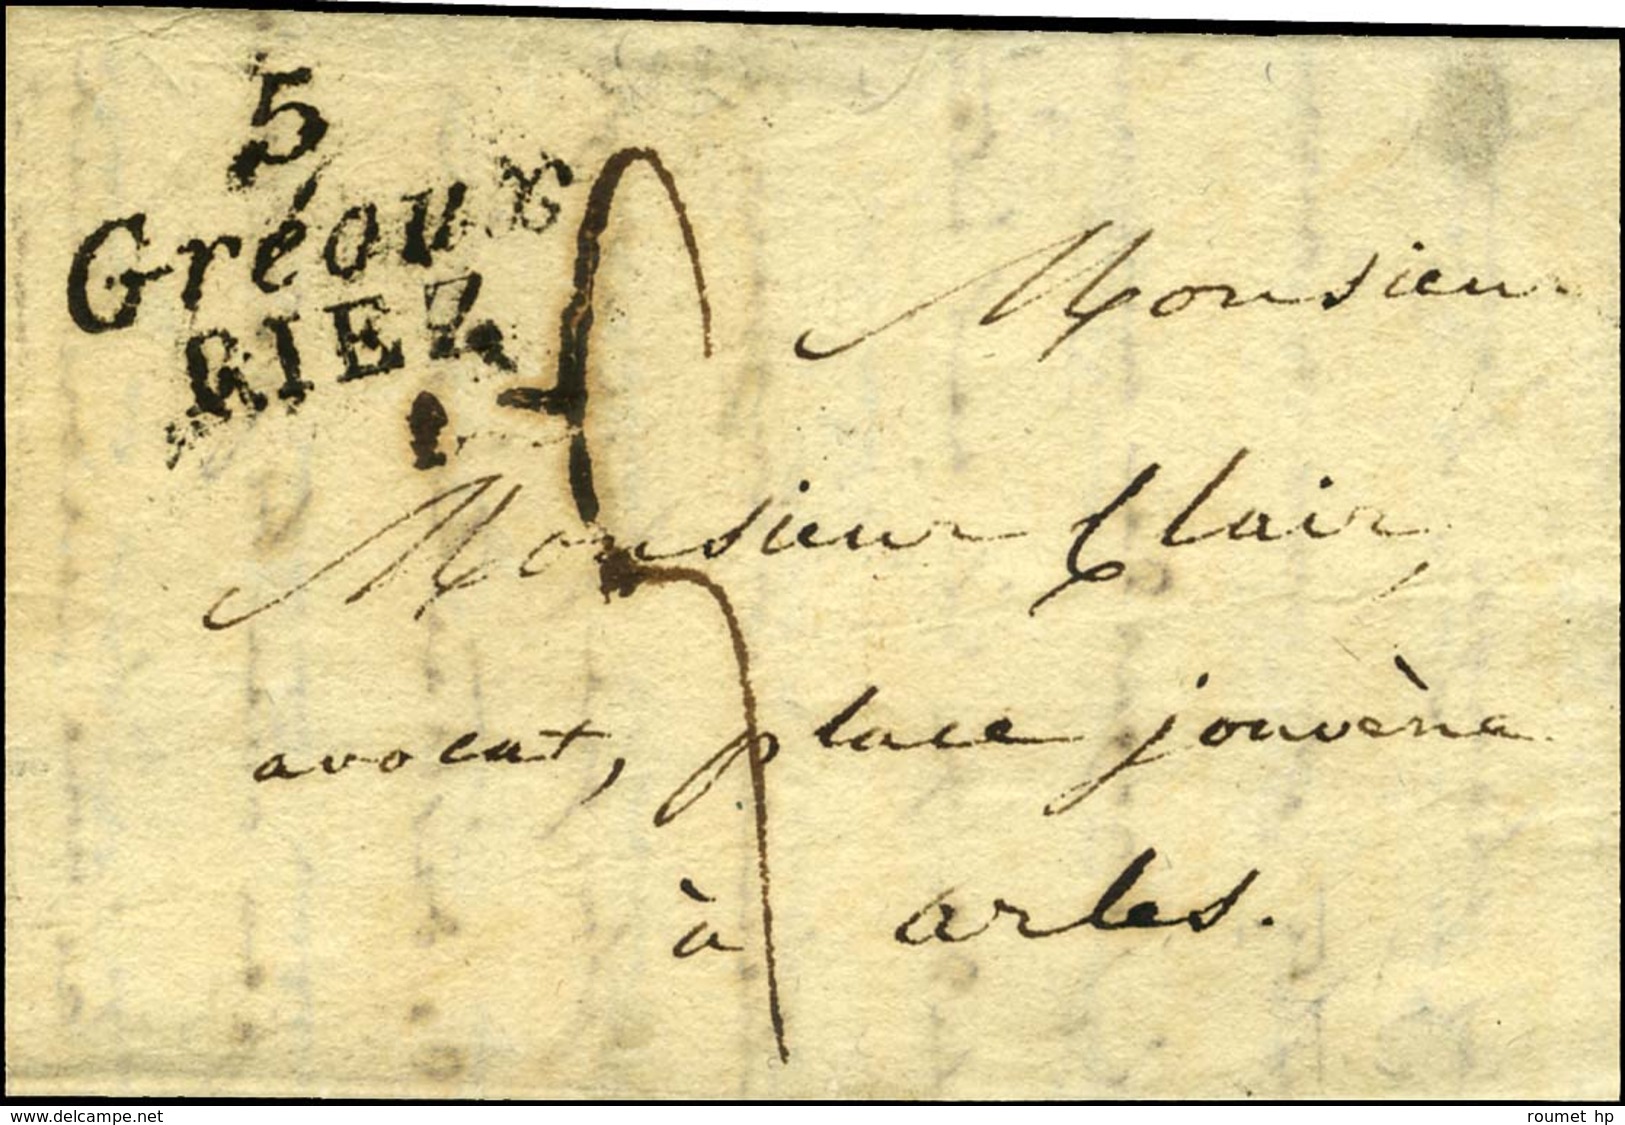 5
Gréoux
RIEZ
Monsieur
Monsieur Clair,
avocat, place jouvène
à arles.
www.delcampe.net
roumet hp